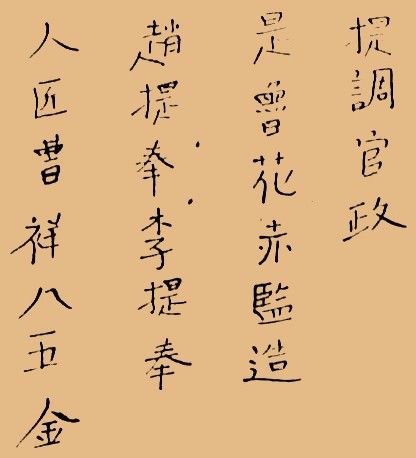 提調官政
是魯花赤監造
趙提舉李提舉
人匠曹祥八五金